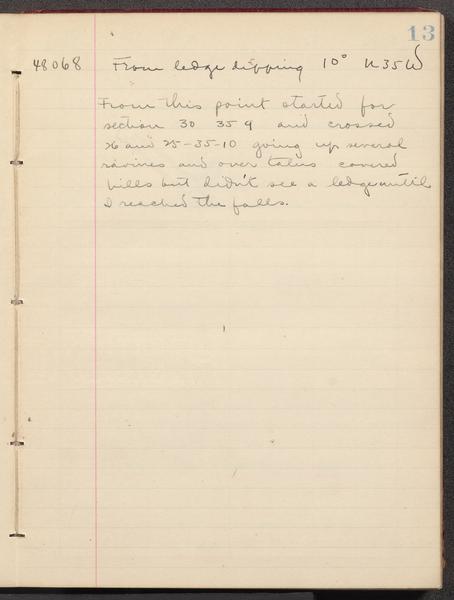 13
48068 From ledge dipping 10° N35W
From this point started for
section 30 35 9 and crossed
26 and 25-35-10 going up several
ravines and over talus covered
hills but didn't see a ledge until
I reached the falls.